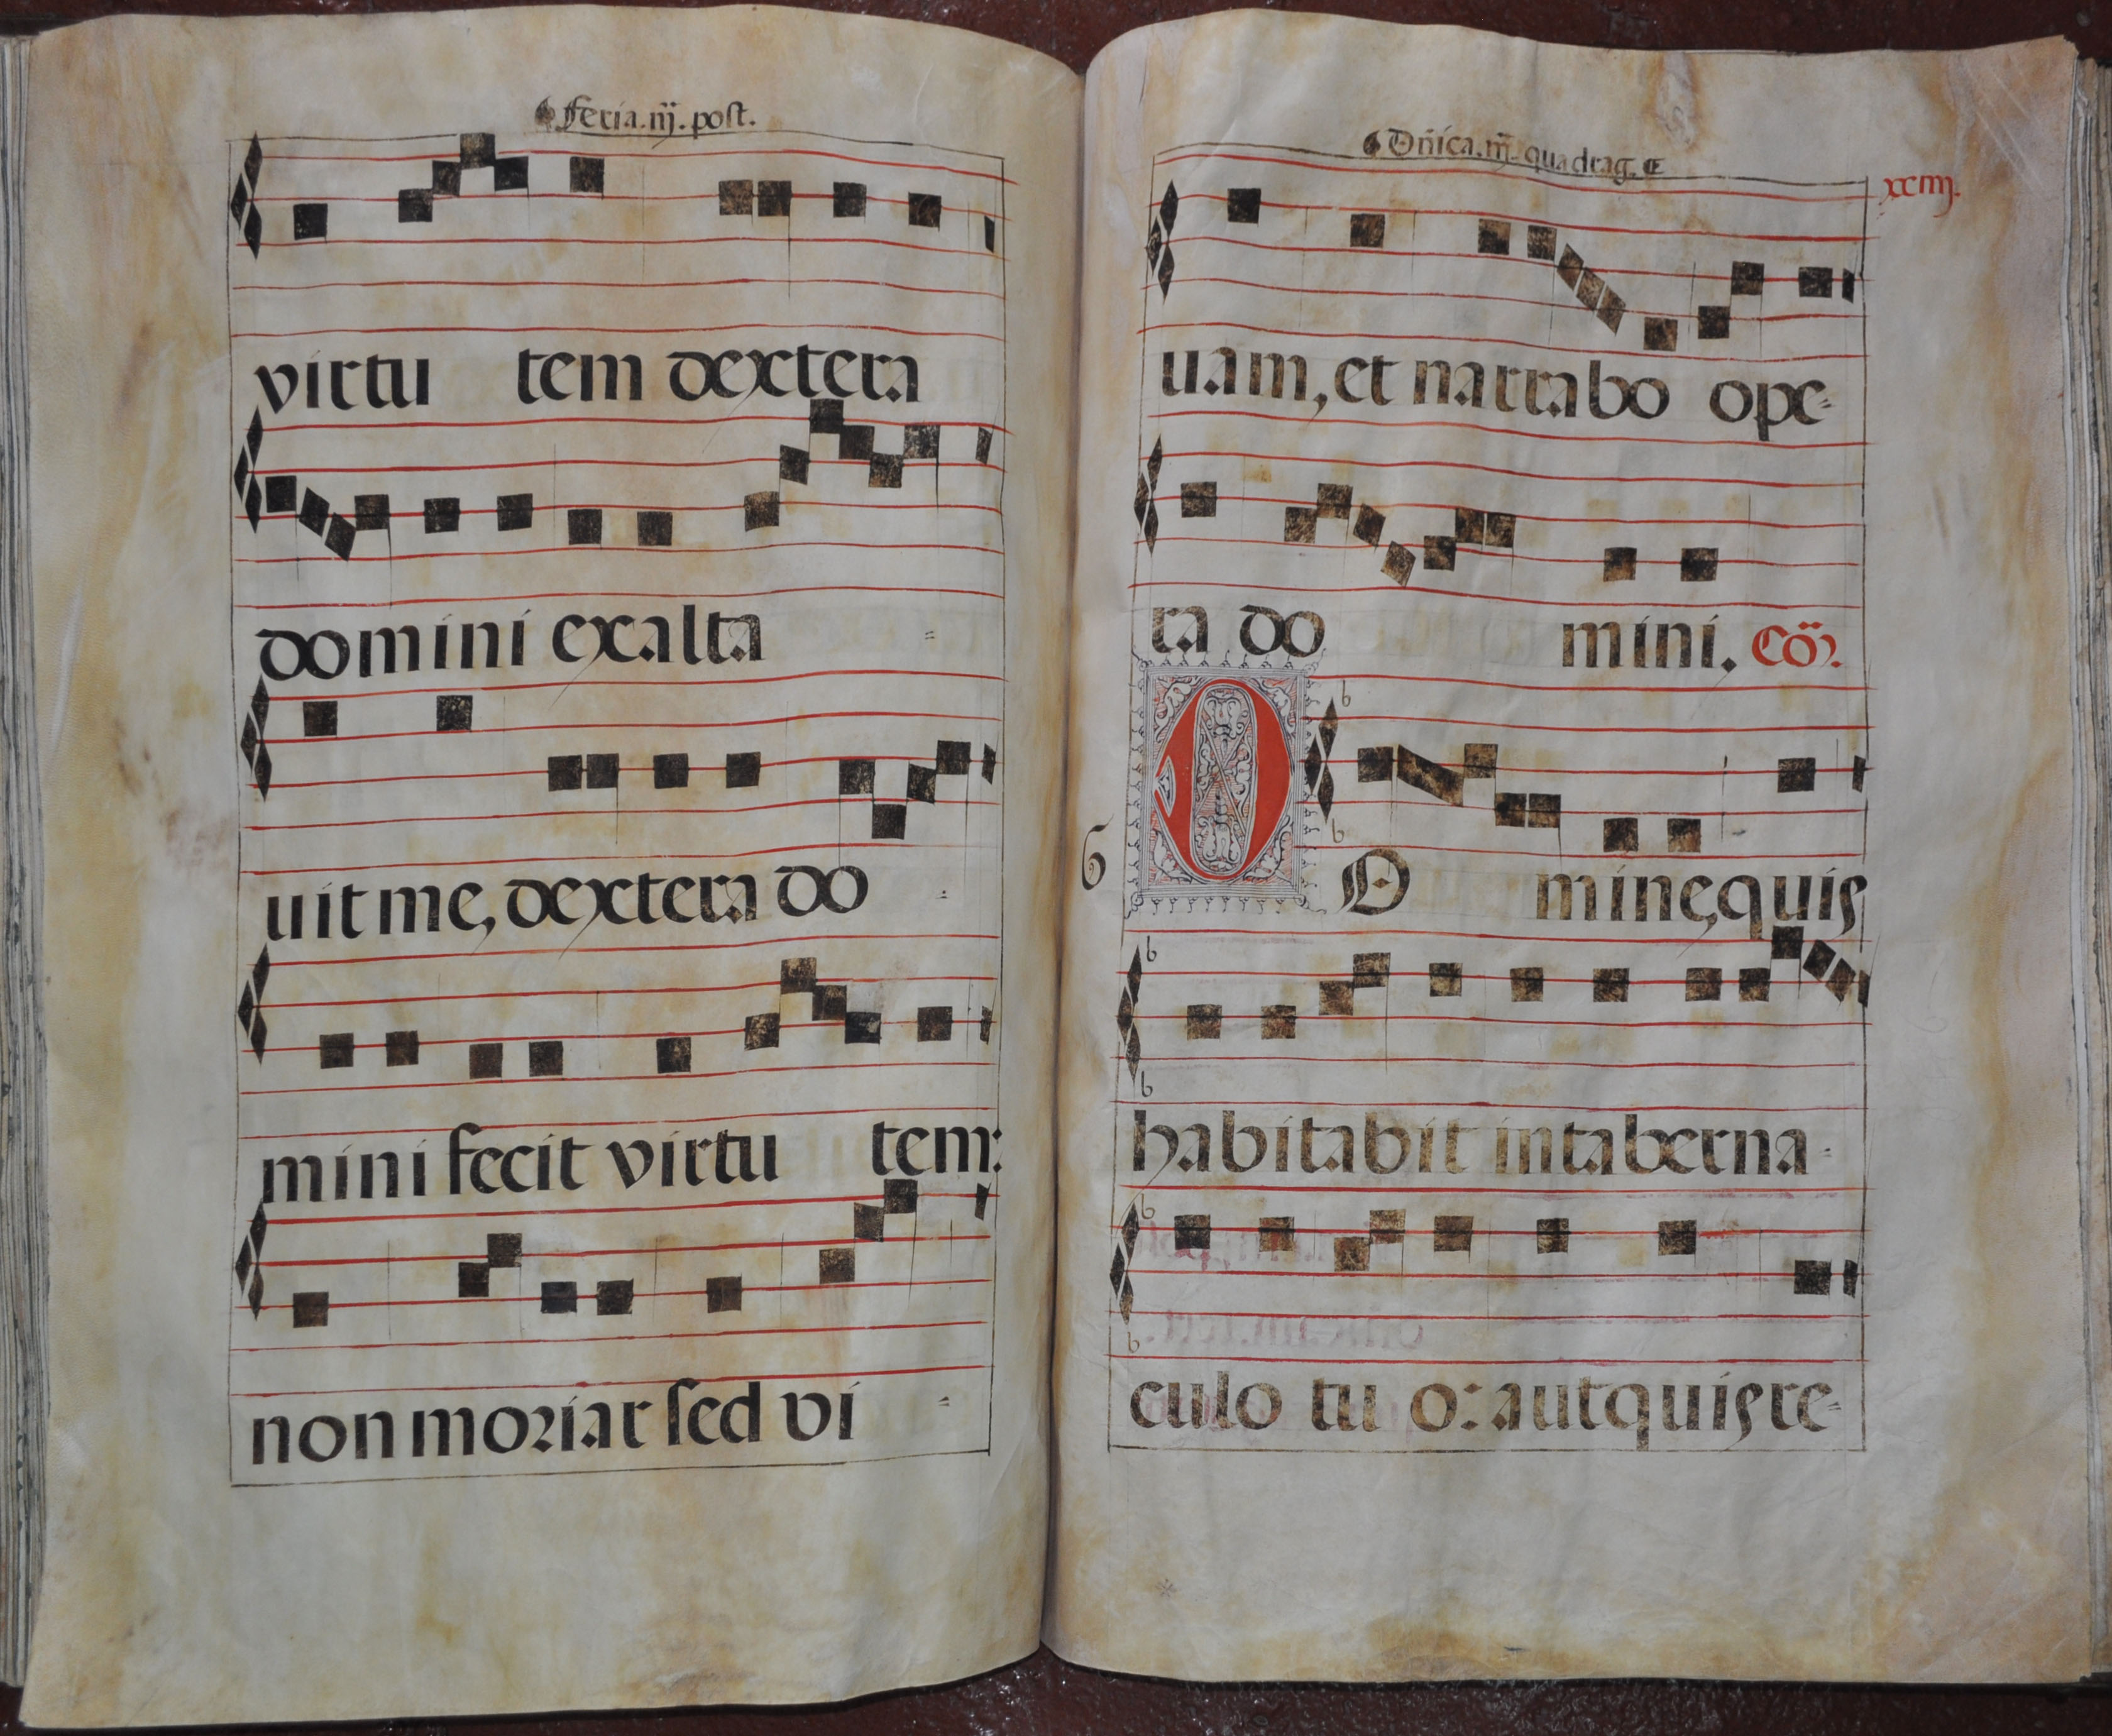 Feria.iij.post.
virtu tem dextera
domini exalta =
uit me, dextera do =
mini fecit virtu tem:
non moriar sed vi =
Dñica.iij.quadrag.
xciiij.
uam, et narrabo ope=
ra do mini. Cõ.
6
D O mine, quis
habitabit in taberna-
culo tu o: aut quis re-